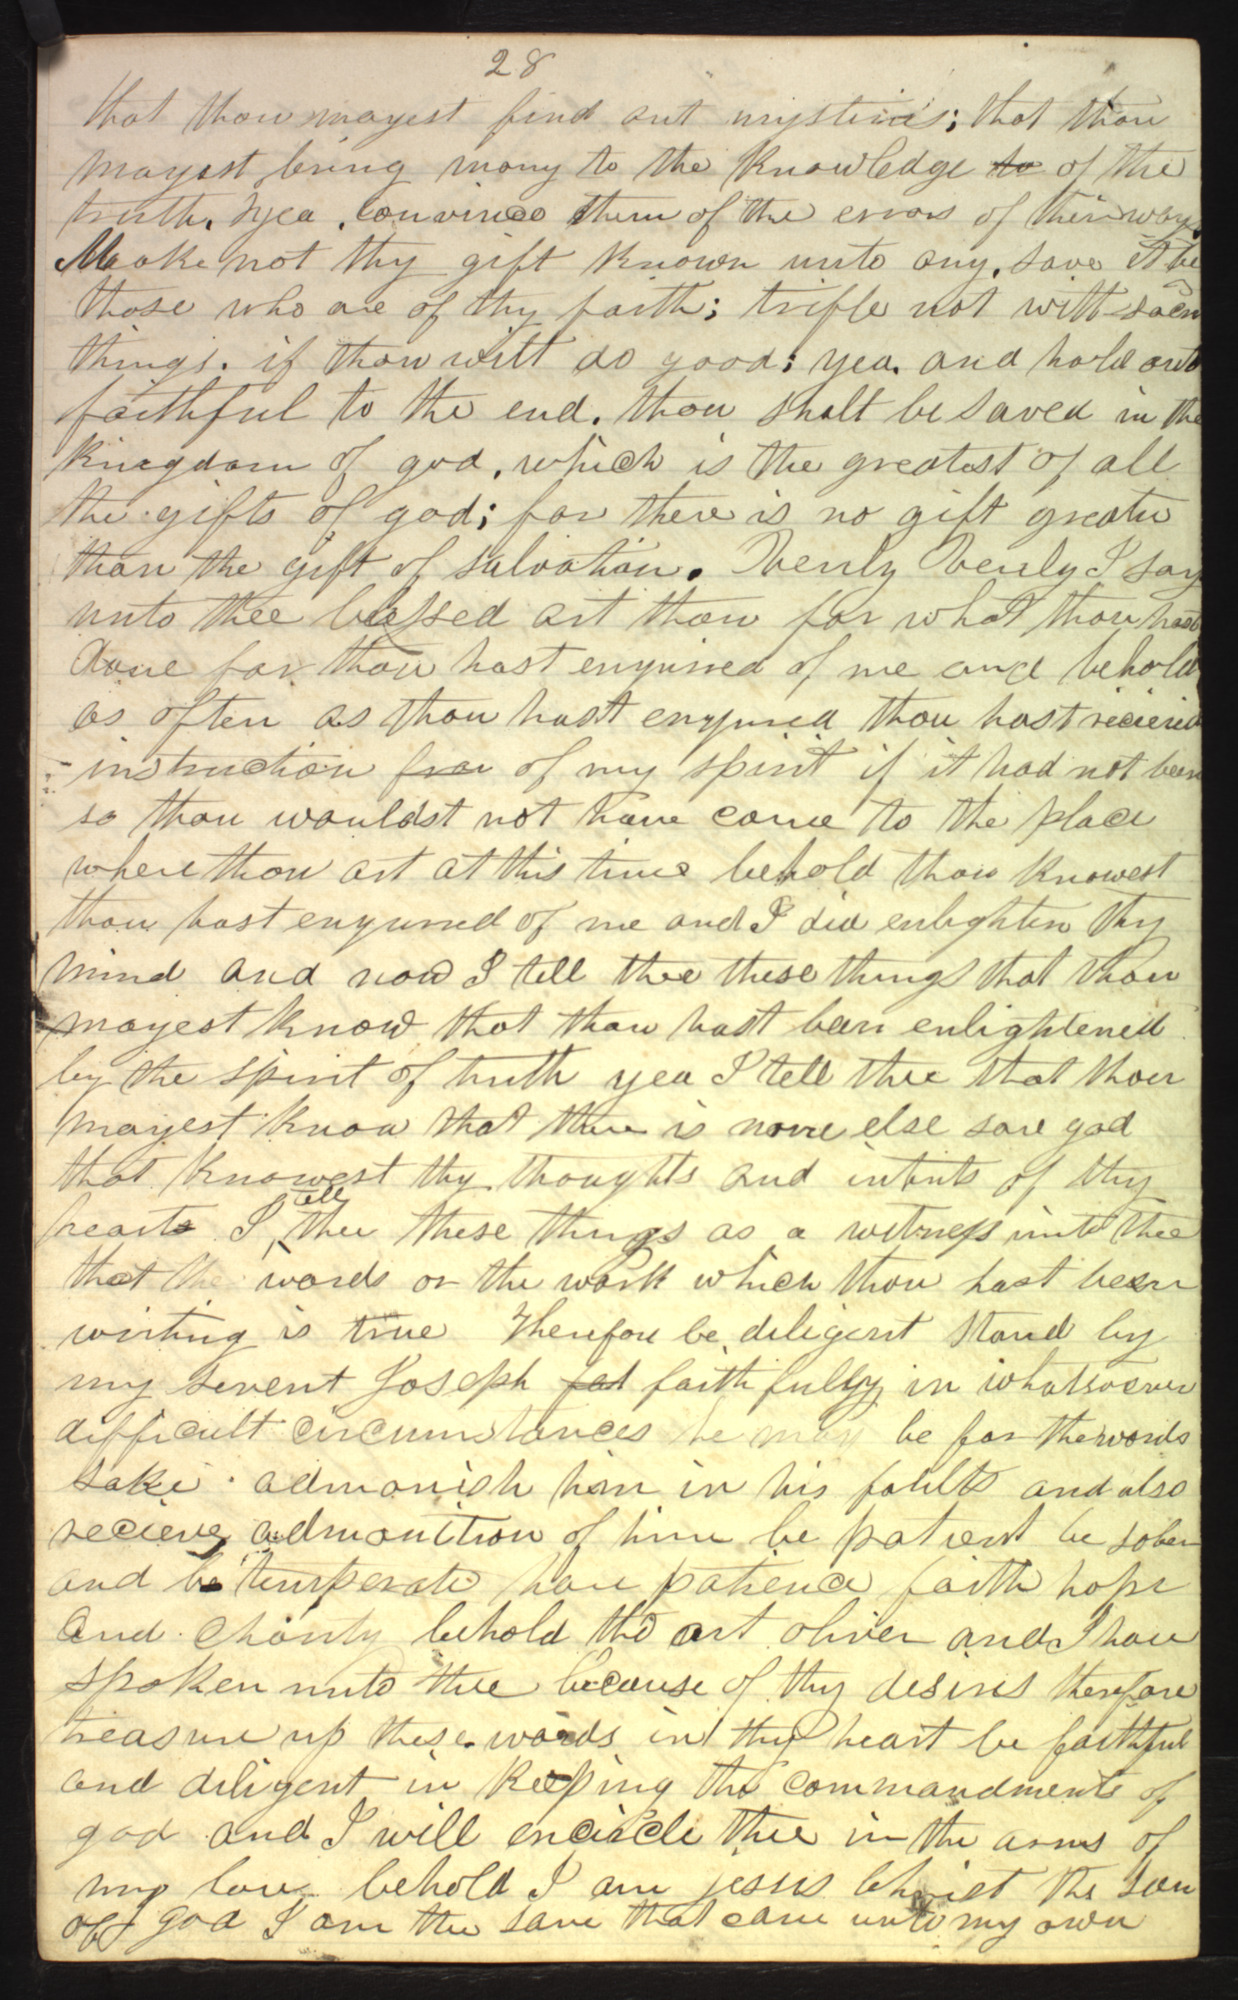 28
that thou mayest find out mysteries; that thou
mayest bring many to the knowledge to of the
truth, yea, convince them of the errors of their way.
Make not thy gift known unto any, save it be
those who are of thy faith; trifle not with sacre
things. if thou wilt do good; yea, and hold out
faithful to the end, thou shalt be saved in the
kingdom of god, which is the greatest of all
the gifts of god; for there is no gift greater
than the gift of salvation. Verily Verily I say
unto thee blessed art thou for what thou hast
done for thou hast enquired of me and behold
as often as thou hast enquired thou hast recieved
instruction from of my spirit if it had not been
so thou wouldst not have come to the place
where thou art at this time behold thou knowest
thou hast enquired of me and I did enlighten thy
mind and now I tell thee these things that thou
mayest know that thou hast been enlightened
by the spirit of truth yea I tell thee that thou
mayest know that there is none else save god
that knowest thy thoughts and intents of thy
hearts I tell thee these things as a witness unto thee
that the words or the work which thou hast been
writing is true Therefore be diligent stand by
my servent Joseph fat faithfully in whatsoever
difficult circumstances he may be for the words
sake admonish him in his faults and also
recieve admonition of him be patient be sober
and be temperate have patience faith hope
and Charity behold tho art oliver and I have
spoken unto thee because of thy desires therefore
treasure up these words in thy heart be faithful
and diligent in keeping the commandments of
god and I will encircle thee in the arms of
my love behold I am jesus Christ the Son
of god I am the same that came unto my own